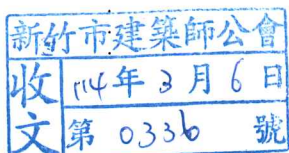 新竹市建築師公會
收文
114年3月6日
第0336號